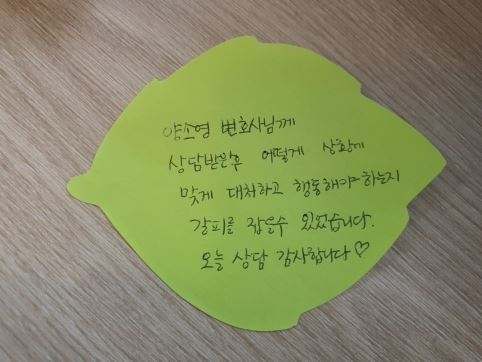 양소영 변호사님께
상담받은후 어떻게 상황에
맞게 대처하고 행동해야하는지
갈피를 잡을수 있었습니다.
오늘 상담 감사합니다♡